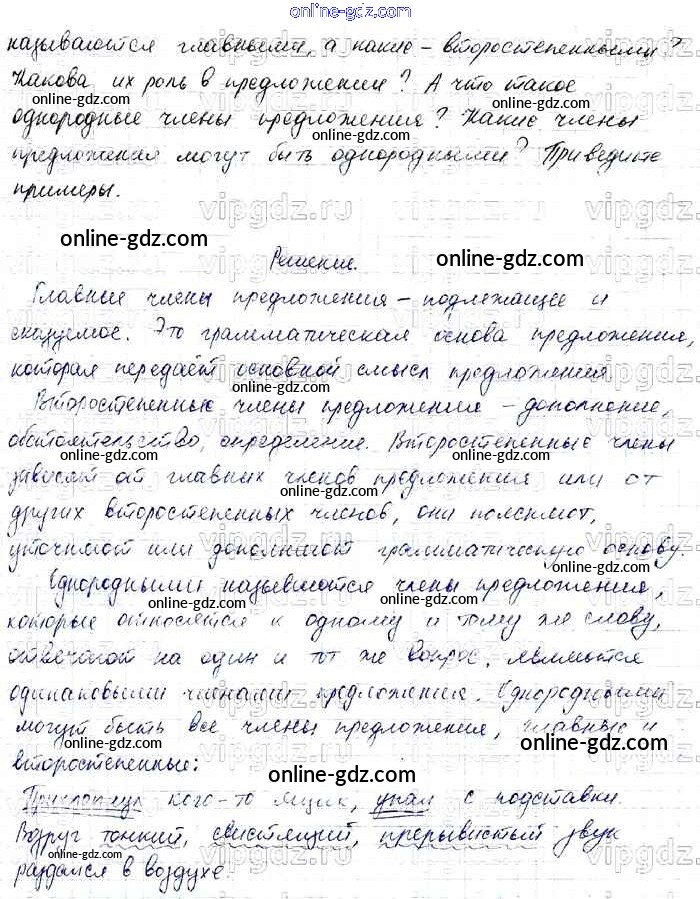 online-gdz.com
называются главными, а какие – второстепенными?
Какова их роль в предложении? А что такое
online-gdz.com online-gdz.com
однородные члены предложения? Какие члены
online-gdz.com online-gdz.com
предложения могут быть однородными? Приведите
примеры.
vipgdz.ru vipgdz.ru vipgdz.ru
online-gdz.com online-gdz.com
Решение.
Главные члены предложения – подлежащее и
online-gdz.com
сказуемое. Это грамматическая основа предложения,
online-gdz.com
которая передаёт основной смысл предложения
online-gdz.com
Второстепенные члены предложения – дополнение,
online-gdz.com
обстоятельство, определение. Второстепенные члены
online-gdz.com
зависят от главных членов предложения или от
online-gdz.com
других второстепенных членов, они поясняют,
online-gdz.com
уточняют или дополняют грамматическую основу.
online-gdz.com
Однородными называются члены предложения,
online-gdz.com
которые относятся к одному и тому же слову,
online-gdz.com
отвечают на один и тот же вопрос, являются
online-gdz.com
одинаковыми членами предложения. Однородными
online-gdz.com
могут быть все члены предложения, главные и
online-gdz.com online-gdz.com
второстепенные:
online-gdz.com
кого-то ящик, упал с подставки.
online-gdz.com
Вдруг тонкий, свистящий, прерывистый звук
online-gdz.com online-gdz.com
раздался в воздухе.